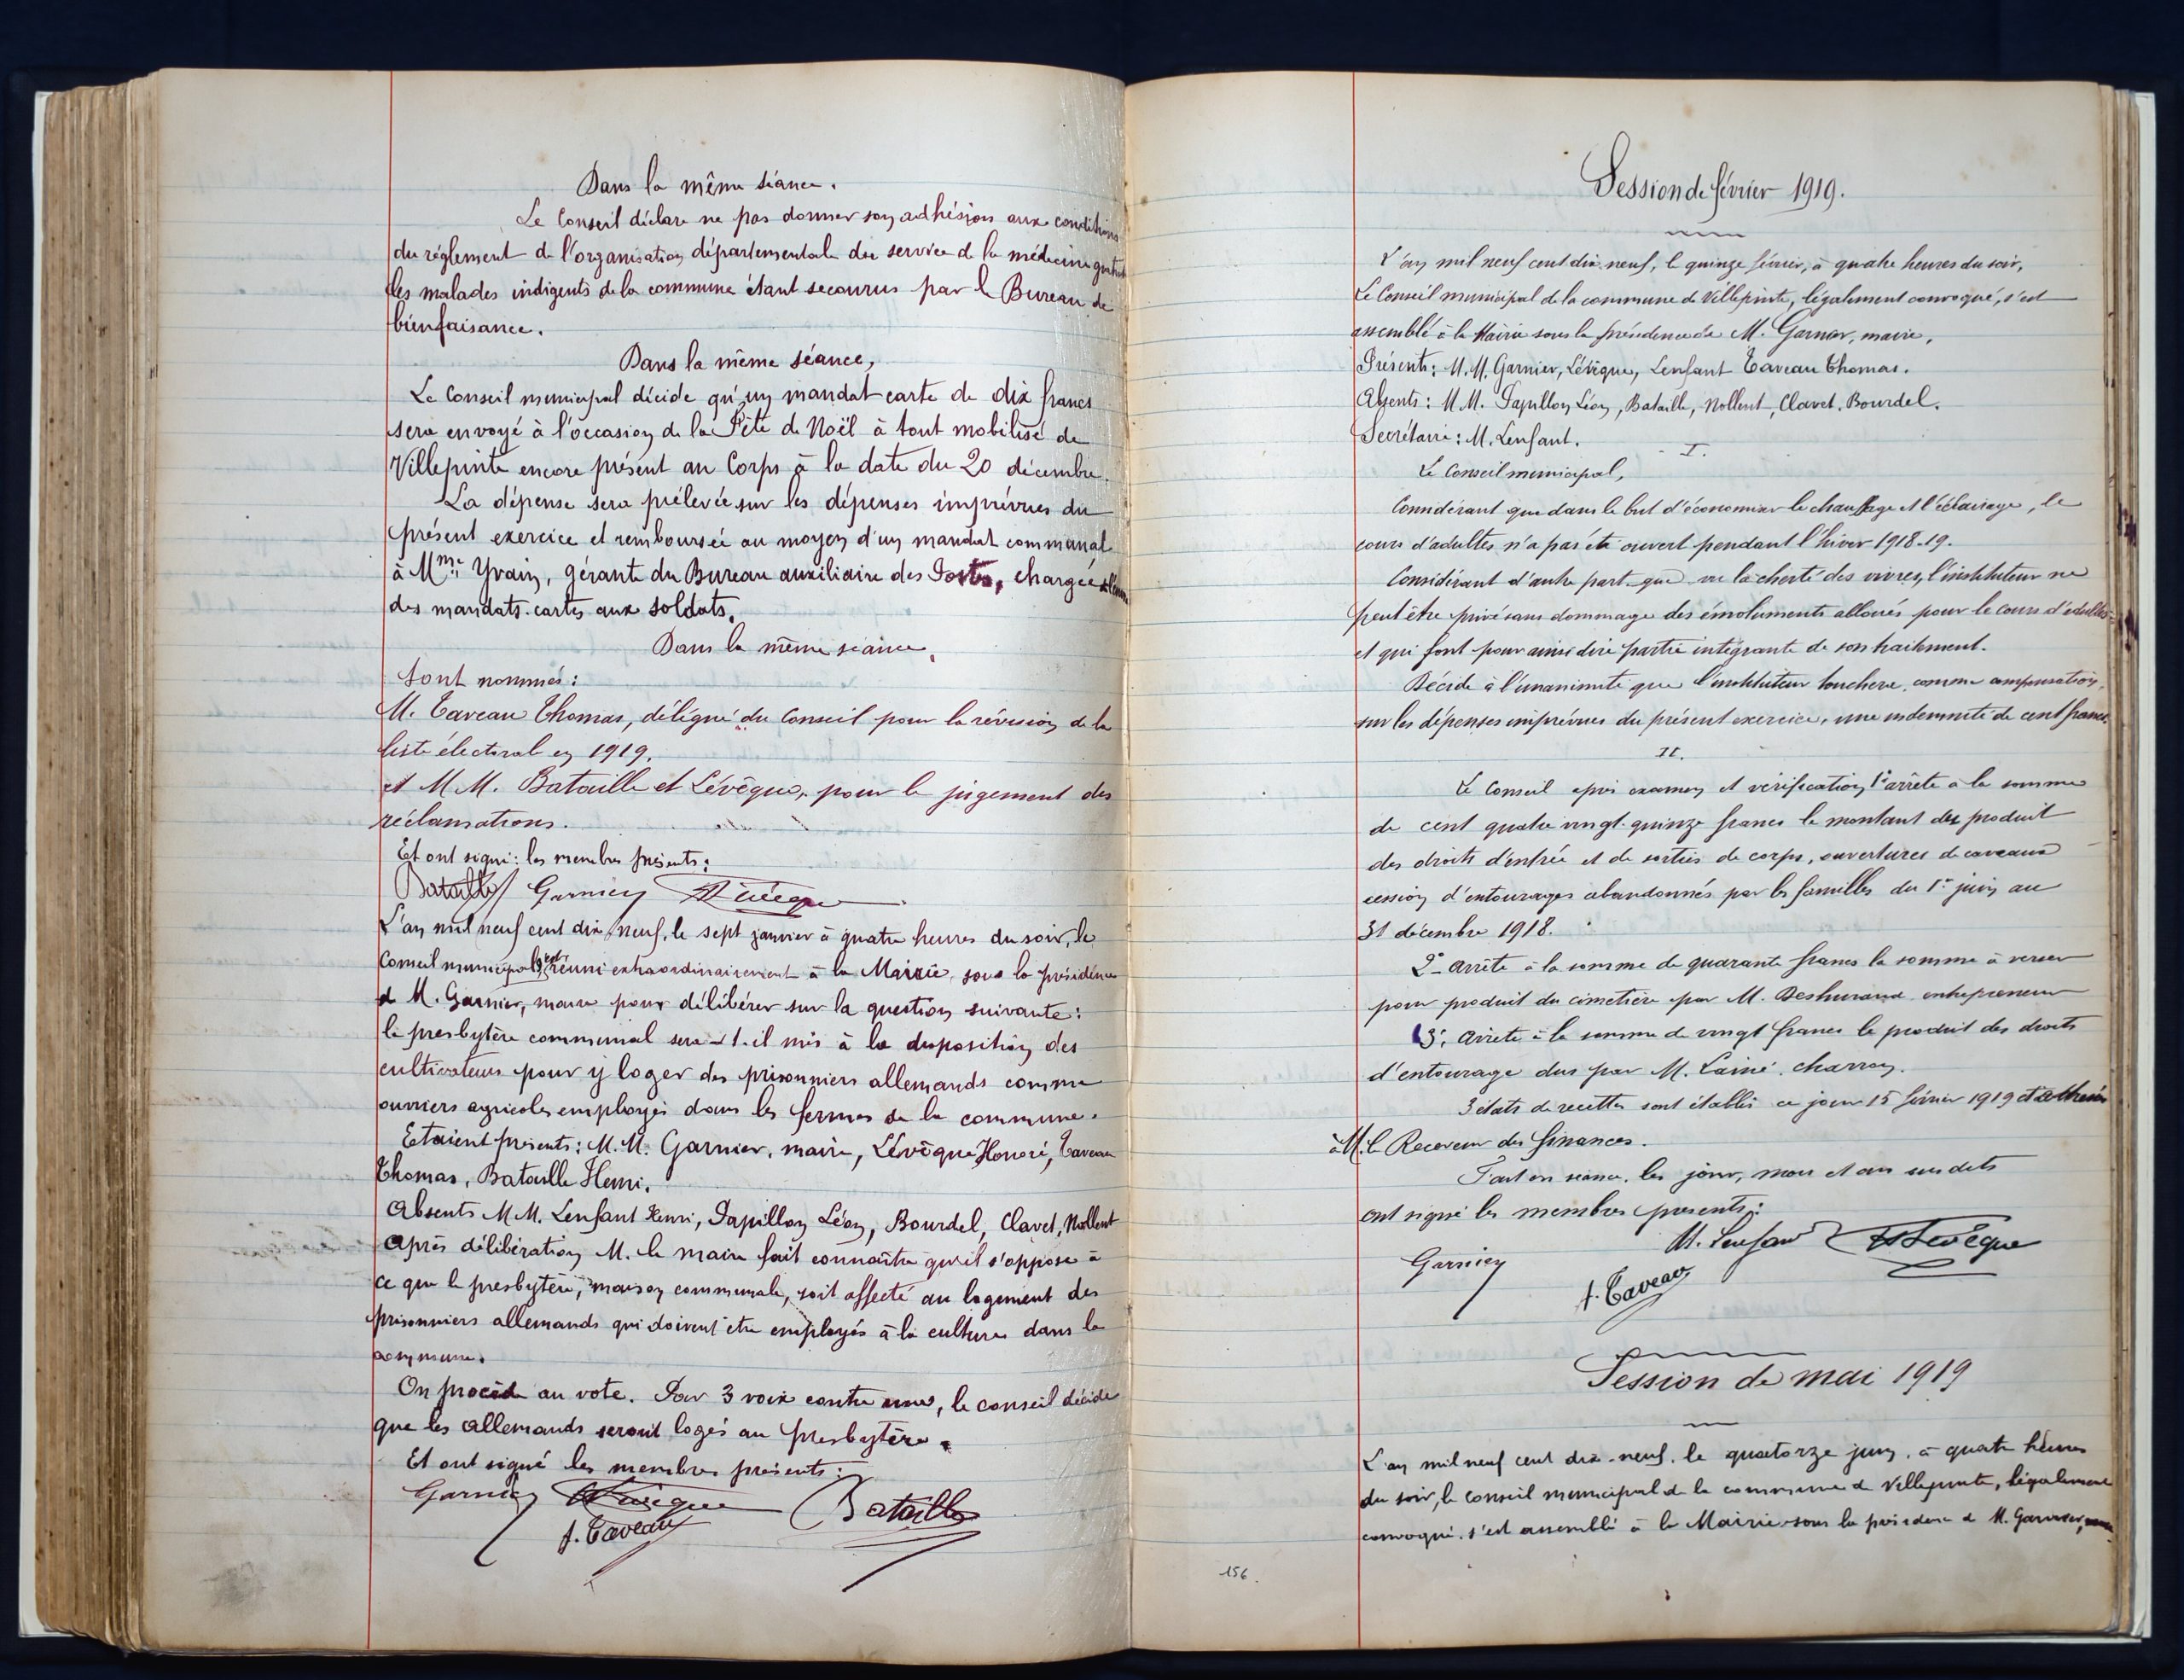 Dans la même séance.
Le Conseil déclare ne pas donner son adhésion aux conditions
du réglement de l'organisation départementale du service de la médecine gratuite
les malades indigents de la commune étant secourus par le Bureau de
bienfaisance.
Dans la même séance,
Le Conseil municipal décide qu'un mandat carte de dix francs
sera envoyé à l'occasion de la Fête de Noël à tout mobilisé de
Villepinte encore présent au Corps à la date du 20 décembre.
La dépense sera prélevée sur les dépenses imprévues du
présent exercice et remboursée au moyen d'un mandat communal
à Mme Yvain, gérante du Bureau auxiliaire des Postes, chargée
des mandats-cartes aux soldats.
Dans la même séance,
Sont nommés :
M. Taveau Thomas, délégué du Conseil pour la révision de la
liste électorale en 1919.
et M M. Bataille et Lévêque, pour le jugement des
réclamations.
Et ont signé : les membres présents :
Bataille Garnier Lévêque
L'an mil neuf cent dix neuf, le sept janvier à quatre heures du soir, le
Conseil municipal s'est réuni extraordinairement à la Mairie, sous la présidence
de M. Garnier, maire pour délibérer sur la question suivante :
le presbytère communal sera-t-il mis à la disposition des
cultivateurs pour y loger des prisonniers allemands comme
ouvriers agricoles employés dans les fermes de la commune.
Etaient présents : M. M. Garnier, maire, Lévêque Honoré, Taveau
Thomas, Bataille Henri.
Absents M M. Lenfant Henri, Papillon Léon, Bourdel, Clavet, Nollent
Après délibération M. le maire fait connaître qu'il s'oppose à
ce que le presbytère, maison communale, soit affecté au logement des
prisonniers allemands qui doivent être employés à la culture dans la
commune.
On procède au vote. Par 3 voix contre une, le conseil décide
que les allemands seront logés au presbytère.
Et ont signé les membres présents :
Garnier Lévêque Bataille
A. Taveau
Session de février 1919.
L'an mil neuf cent dix neuf, le quinze février, à quatre heures du soir,
Le Conseil municipal de la commune de Villepinte, légalement convoqué, s'est
assemblé à la Mairie sous la présidence de M. Garnier, maire.
Présents : M. M. Garnier, Lévêque, Lenfant Taveau Thomas.
Absents : M M. Papillon Léon, Bataille, Nollent, Clavet, Bourdel.
Secrétaire : M. Lenfant.
I.
Le Conseil municipal,
Considérant que dans le but d'économiser le chauffage et l'éclairage, le
cours d'adultes n'a pas été ouvert pendant l'hiver 1918-19.
Considérant d'autre part que vu la cherté des vivres, l'instituteur ne
peut être privé sans dommage des émoluments alloués pour le cours d'adultes
et qui font pour ainsi dire partie intégrante de son traitement.
Décide à l'unanimité que l'instituteur touchera, comme compensation,
sur les dépenses imprévues du présent exercice, une indemnité de cent francs.
II.
Le Conseil après examen et vérification, 1° arrête à la somme
de cent quatre vingt-quinze francs le montant du produit
des droits d'entrée et de sorties de corps, ouvertures de caveaux
cession d'entourages abandonnés par les familles du 1er juin au
31 décembre 1918.
2° Arrête à la somme de quarante francs la somme à verser
pour produit du cimetière par M. entrepreneur
3° Arrête à la somme de vingt francs le produit des droits
d'entourage dus par M. Lainé, charron.
3 états de recettes sont établis ce jour 15 février 1919 et
à M. le Receveur des finances.
Fait en séance, les jour, mois et an susdits
ont signé les membres présents :
Garnier H. Lenfant Lévêque
A. Taveau
Session de mai 1919
L'an mil neuf cent dix-neuf, le quatorze juin, à quatre heures
du soir, le conseil municipal de la commune de Villepinte, légalement
convoqué, s'est assemblé à la Mairie sous la présidence de M. Garnier,
156.